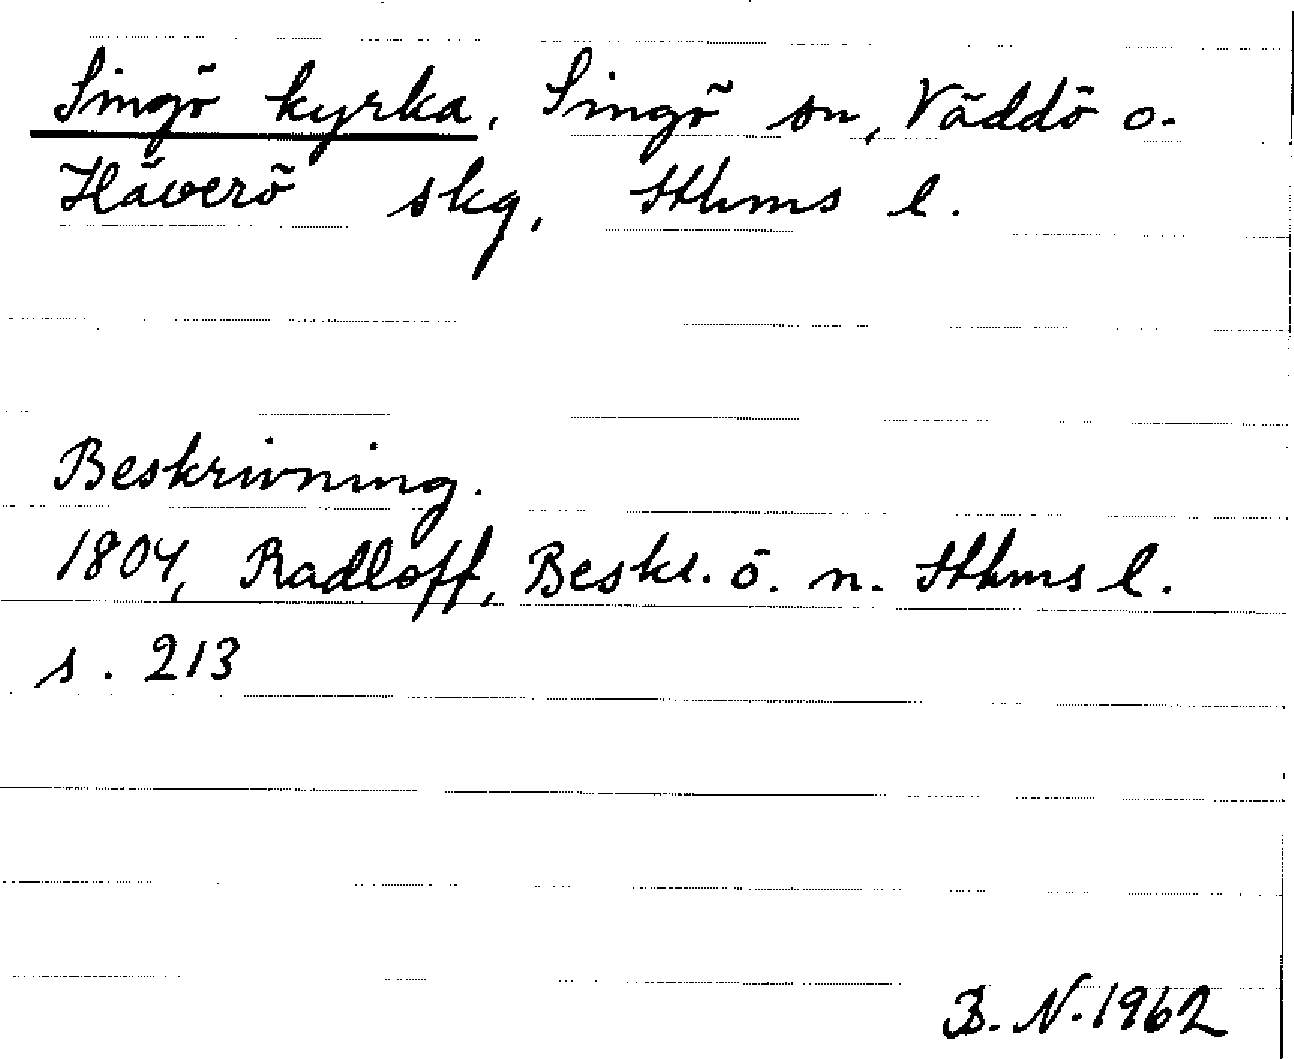 Singö kyrka, Singö sn, Väddö o.
Häverö skg, Sthms l.
Beskrivning.
1804, Radloff, Beskr. ö. n. Sthms l.
s. 213
B. N. 1962